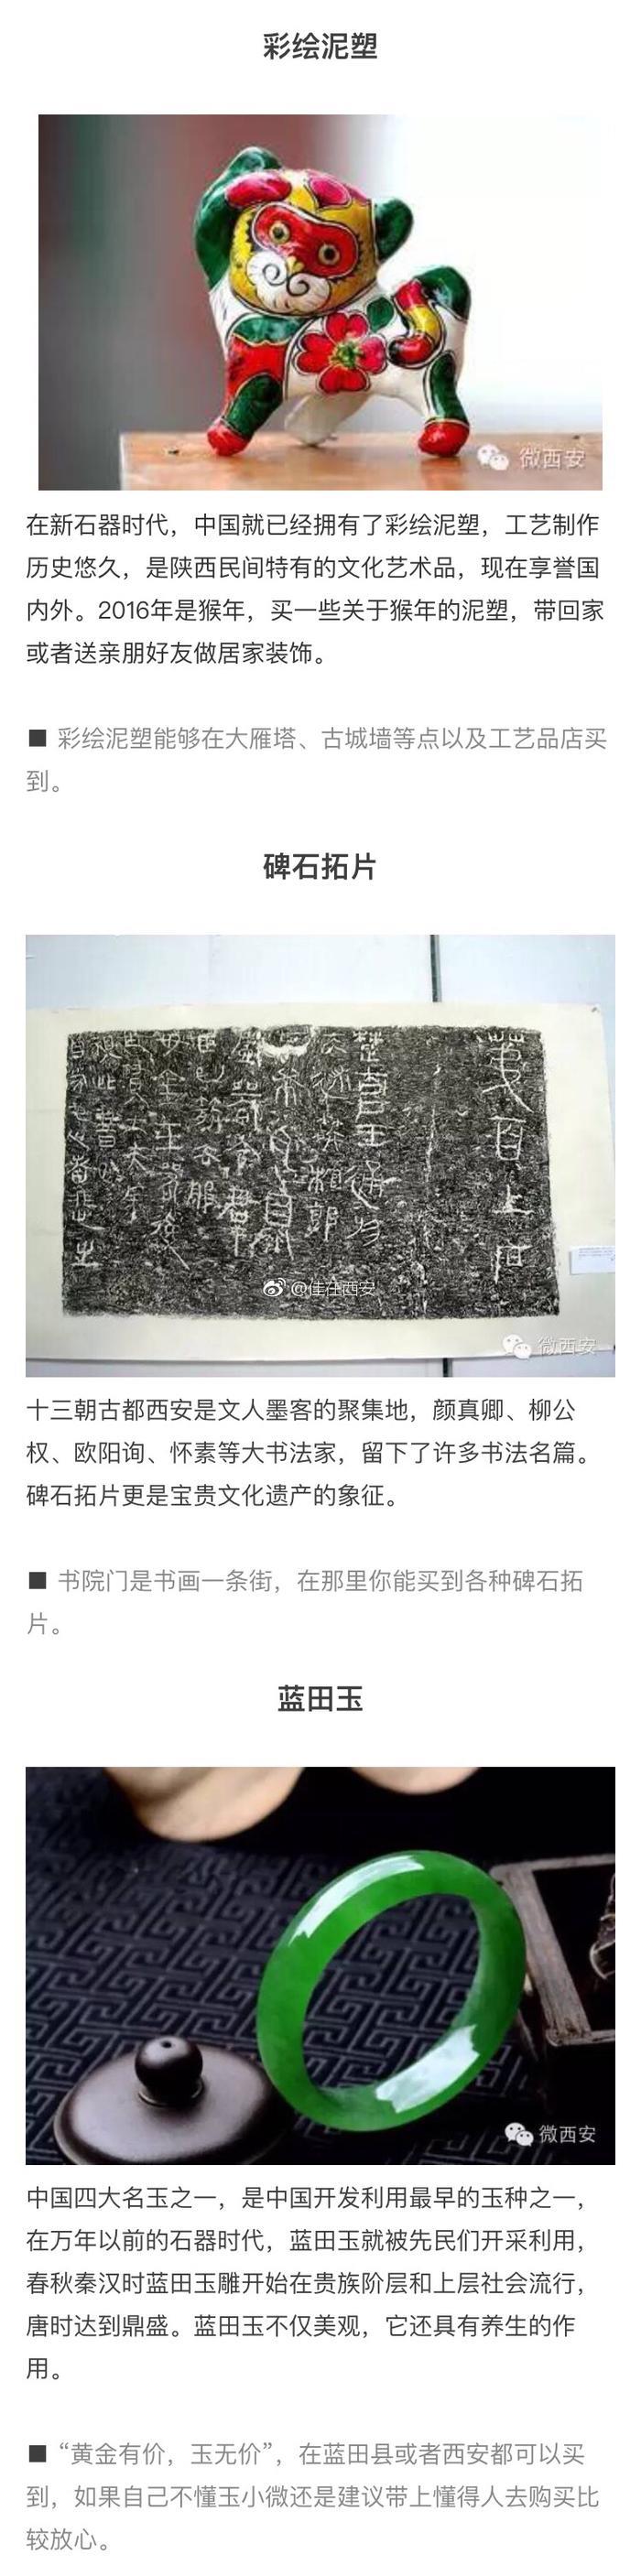 彩绘泥塑
微西安
在新石器时代，中国就已经拥有了彩绘泥塑，工艺制作
历史悠久，是陕西民间特有的文化艺术品，现在享誉国
内外。2016年是猴年，买一些关于猴年的泥塑，带回家
或者送亲朋好友做居家装饰。
■ 彩绘泥塑能够在大雁塔、古城墙等点以及工艺品店买
到。
碑石拓片
@佳在西安
微西安
十三朝古都西安是文人墨客的聚集地，颜真卿、柳公
权、欧阳询、怀素等大书法家，留下了许多书法名篇。
碑石拓片更是宝贵文化遗产的象征。
■ 书院门是书画一条街，在那里你能买到各种碑石拓
片。
蓝田玉
微西安
中国四大名玉之一，是中国开发利用最早的玉种之一，
在万年以前的石器时代，蓝田玉就被先民们开采利用，
春秋秦汉时蓝田玉雕开始在贵族阶层和上层社会流行，
唐时达到鼎盛。蓝田玉不仅美观，它还具有养生的作
用。
■ “黄金有价，玉无价”，在蓝田县或者西安都可以买
到，如果自己不懂玉小微还是建议带上懂得人去购买比
较放心。